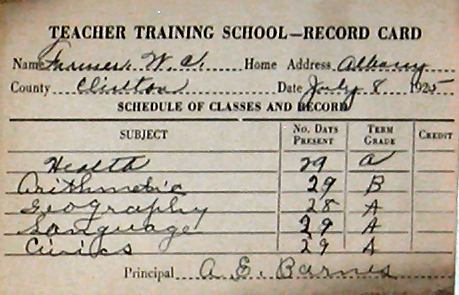 TEACHER TRAINING SCHOOL—RECORD CARD
Name Farmer, W. C. Home Address Albany
County Clinton Date July 8 1925
SCHEDULE OF CLASSES AND RECORD
SUBJECT No. Days Present Term Grade Credit
Health 29 A
Arithmetic 29 B
Geography 28 A
Language 29 A
Civics 29 A
Principal A. E. Barnes